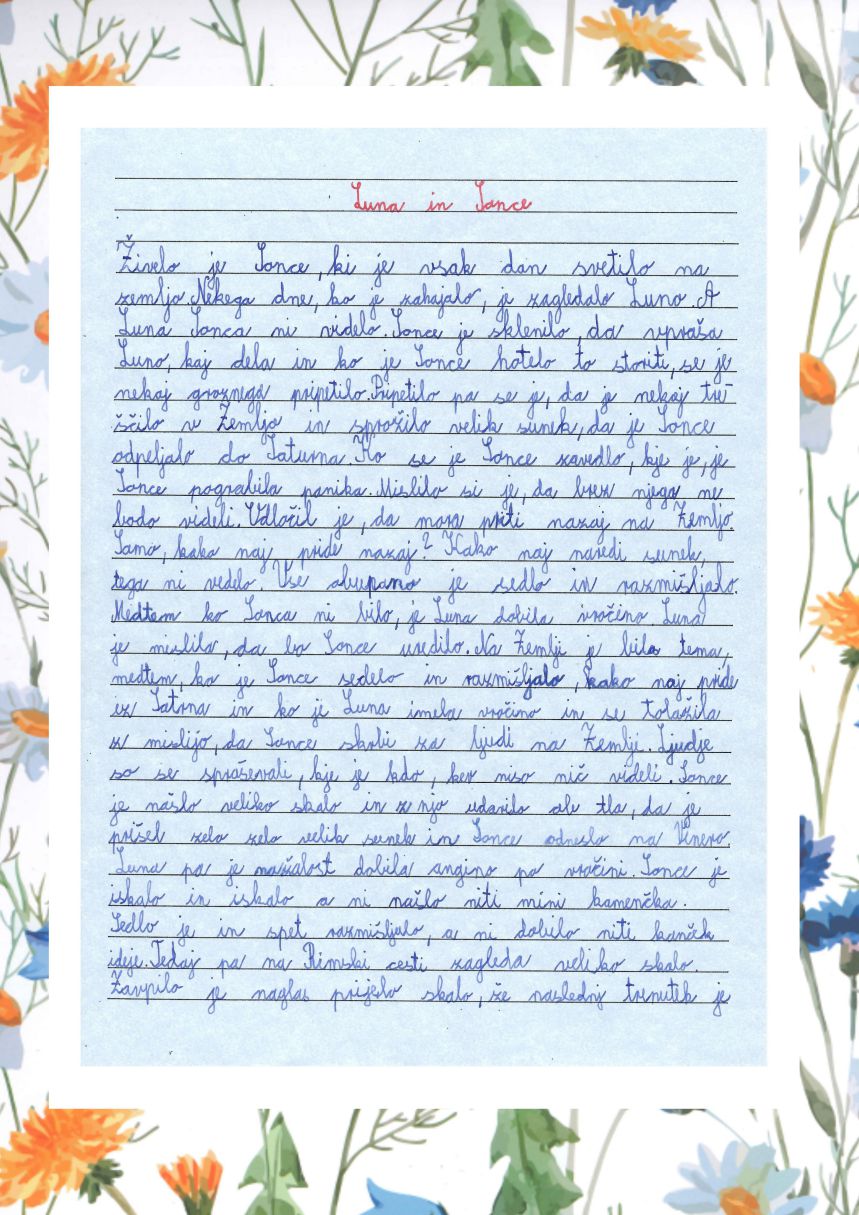 Luna in Sonce
Živelo je Sonce, ki je vsak dan svetilo na
zemljo. Nekega dne, ko je zahajalo, je zagledalo Luno. A
Luna Sonca ni videlo. Sonce je sklenilo, da vpraša
Luno, kaj dela in ko je Sonce hotelo to storiti, se je
nekaj groznega pripetilo. Pripetilo pa se je, da je nekaj tre-
ščilo v Zemljo in sprožilo velik sunek, da je Sonce
odpeljalo do Saturna. Ko se je Sonce zavedlo, kje je, je
Sonce pograbila panika. Mislilo si je, da brez njega ne
bodo videli. Odločil je, da mora priti nazaj na Zemljo.
Samo, kako naj pride nazaj? Kako naj naredi sunek,
tega ni vedelo. Vse obupano je sedlo in razmišljalo.
Medtem ko Sonca ni bilo, je Luna dobila vročino. Luna
je mislila, da bo Sonce uredilo. Na Zemlji je bila tema,
medtem, ko je Sonce sedelo in razmišljalo, kako naj pride
iz Satrna in ko je Luna imela vročino in se tolažila
z mislijo, da Sonce skrbi za ljudi na Zemlji. Ljudje
so se spraševali, kje je kdo, ker niso nič videli. Sonce
je našlo veliko skalo in z njo udarilo ob tla, da je
prišel zelo zelo velik sunek in Sonce odneslo na Venero.
Luna pa je nažalost dobila angino po vročini. Sonce je
iskalo in iskalo a ni našlo niti mini kamenčka.
Sedlo je in spet razmišljalo, a ni dobilo niti kanček
ideje. Tedaj pa na Rimski cesti zagleda veliko skalo.
Zavpilo je naglas prijelo skalo, že naslednji trenutek je